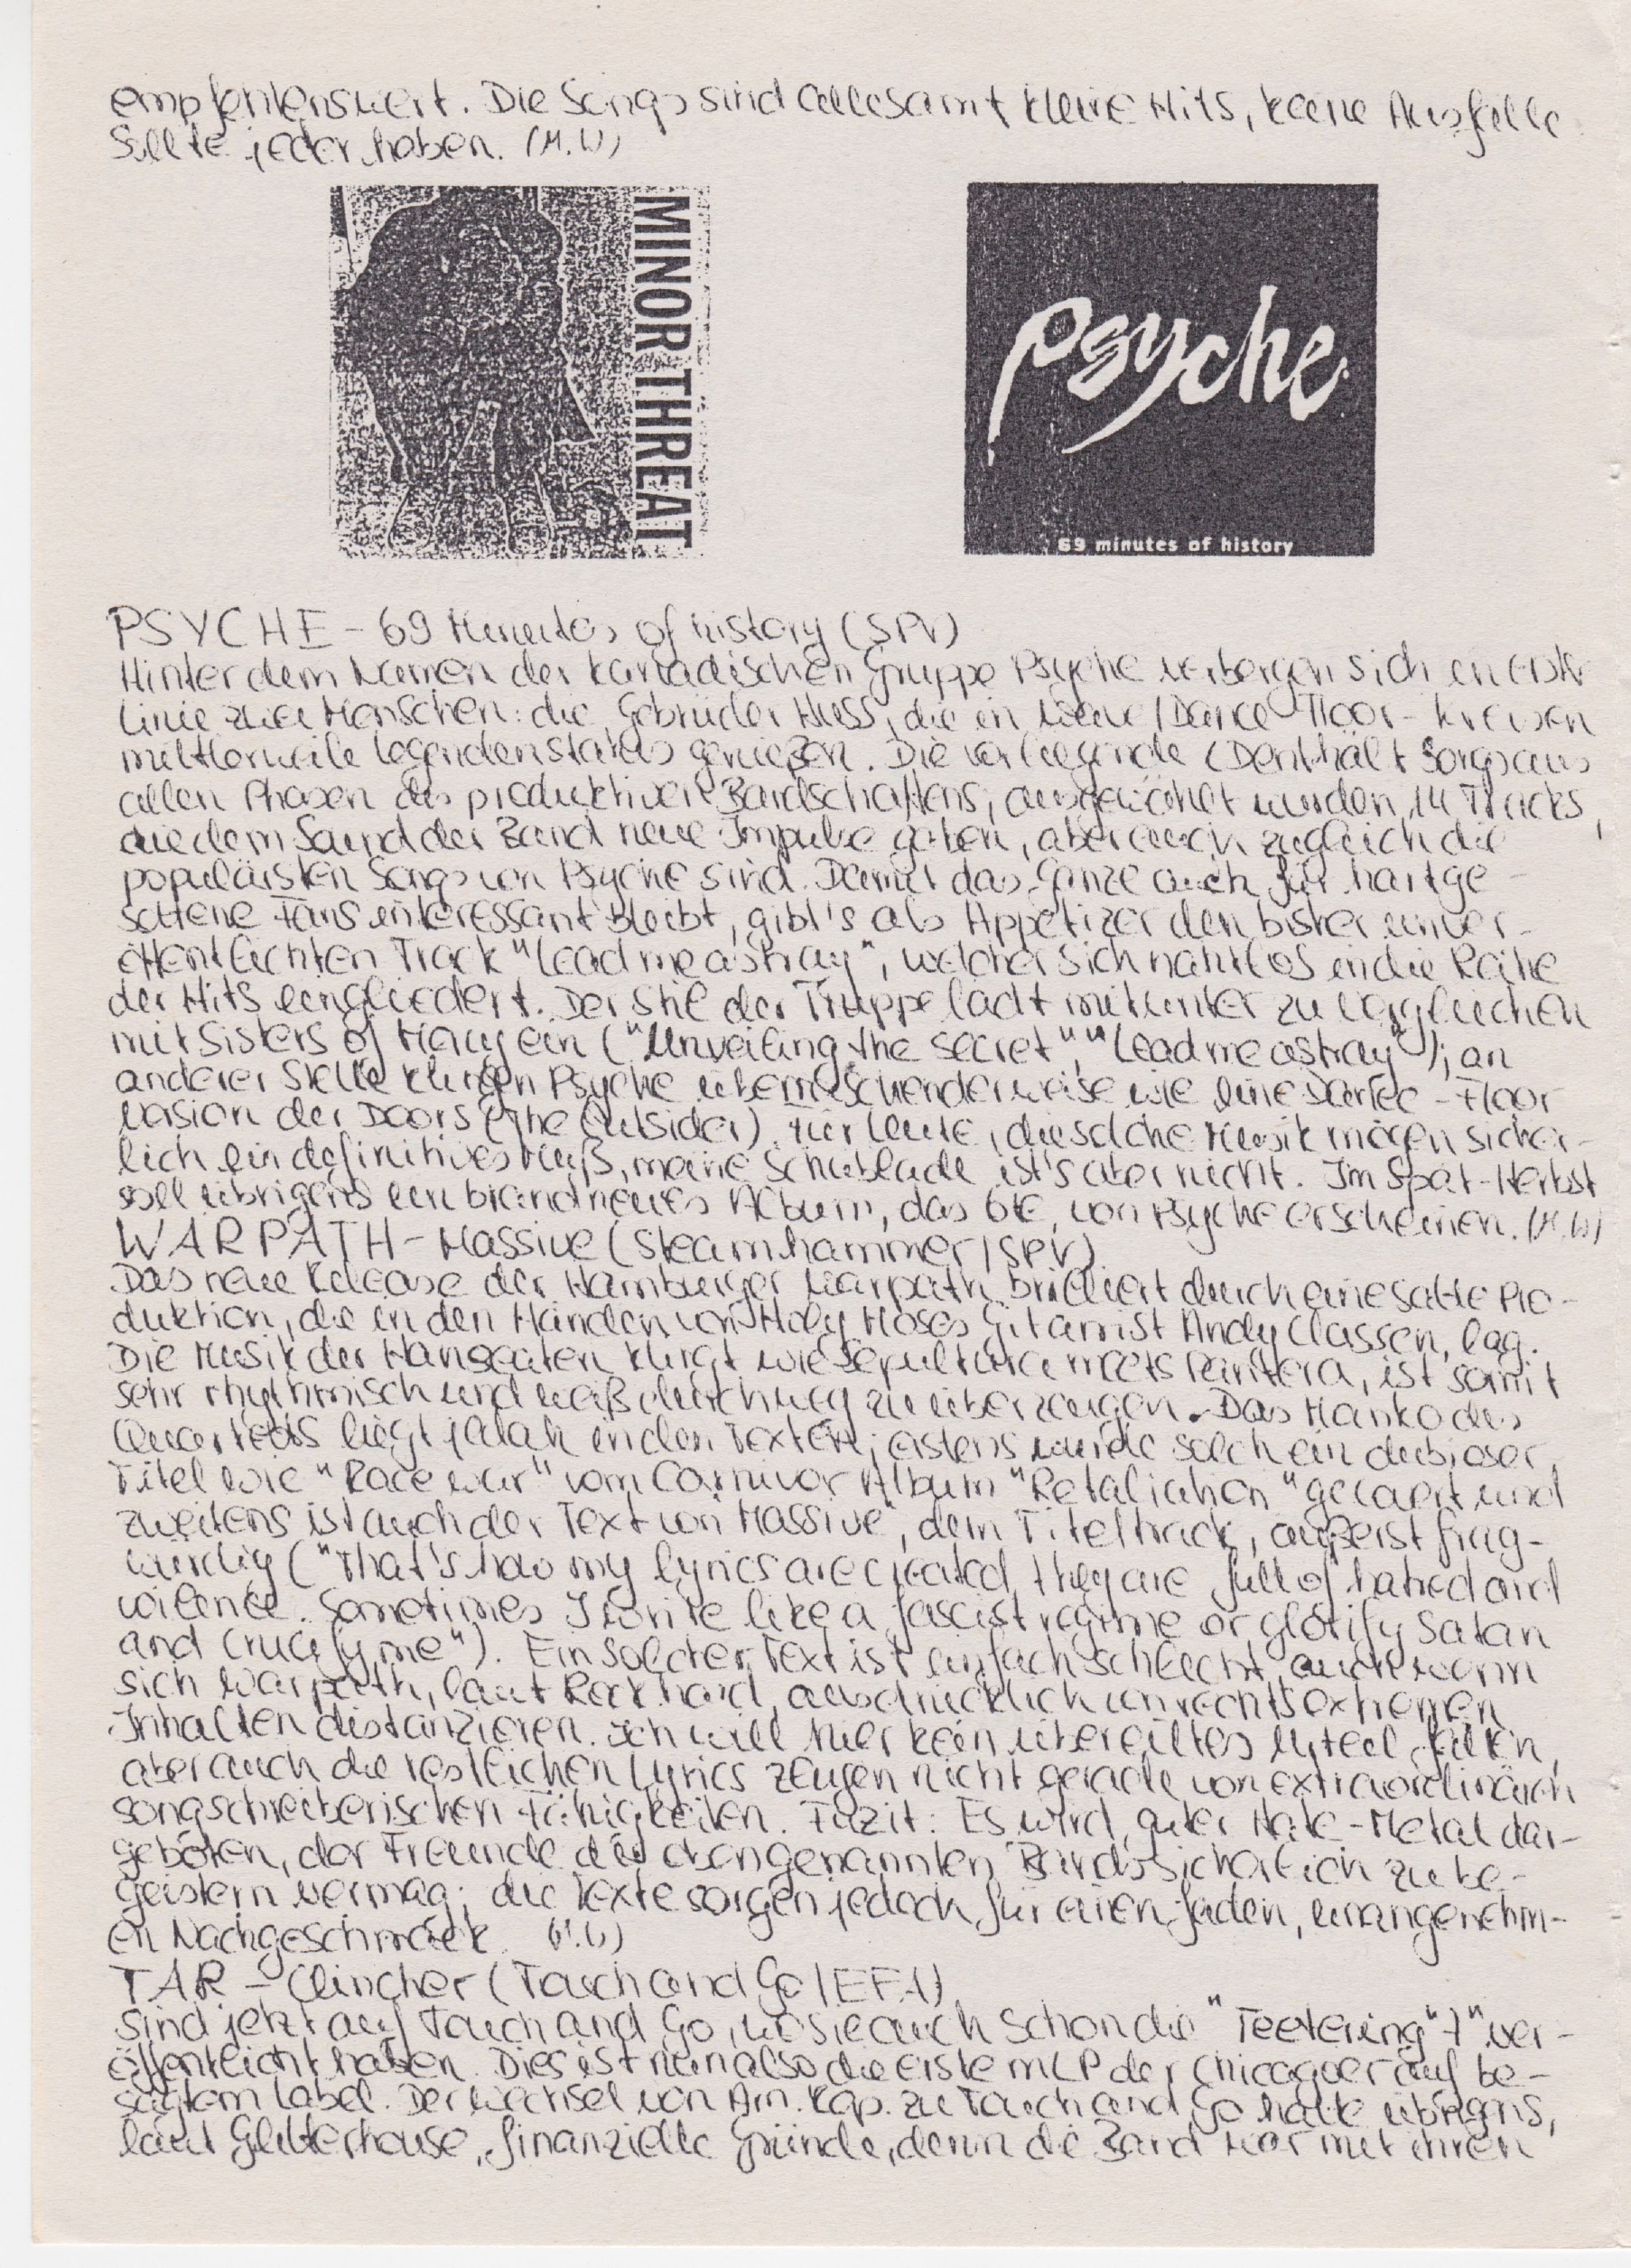 empfehlenswert. Die Songs sind allesamt kleine Hits, keine Ausfälle
Sollte jeder haben. (M.W)
MINOR THREAT
psyche
69 minutes of history
PSYCHE - 69 Minutes of history (SPV)
Hinter dem Namen der kanadischen Gruppe Psyche verbergen sich in erster
Linie zwei Menschen: die Gebrüder Huss, die in Wave/Dance-Floor-Kreisen
mittlerweile Legendenstatus genießen. Die vorliegende CD enthält Songs aus
allen Phasen des produktiven Bandschaffens, ausgewählt wurden 14 Tracks,
die dem Sound der Band neue Impulse gaben, aber auch zugleich die
populärsten Songs von Psyche sind. Damit das Ganze auch für hartge-
sottene Fans interessant bleibt, gibt's als Appetizer den bisher unver-
öffentlichten Track "Lead me astray", welcher sich nahtlos in die Reihe
der Hits eingliedert. Der Stil der Truppe lädt mitunter zu Vergleichen
mit Sisters of Mercy ein ("Unveiling the secret", "Lead me astray"); an
anderer Stelle klingen Psyche überraschenderweise wie eine Dance-Floor
Version der Doors (The Outsider). Für Leute, die solche Musik mögen sicher-
lich ein definitives Muß, meine Schublade ist's aber nicht. Im Spät-Herbst
soll übrigens ein brandneues Album, das 6te, von Psyche erscheinen. (M.W)
WARPATH - Massive (Steamhammer/SPV)
Das neue Release der Hamburger Warpath brilliert durch eine satte Pro-
duktion, die in den Händen von Holy Moses Gitarrist Andy Classen, lag.
Die Musik der Hanseaten klingt wie Sepultura meets Pantera, ist somit
sehr rhythmisch und weiß durchweg zu überzeugen. Das Manko des
Quartetts liegt fatal in den Texten; erstens wurde solch ein dubioser
Titel wie "Race war" vom Carnivor Album "Retaliation" gecovert und
zweitens ist auch der Text von Massive", dem Titeltrack, äußerst frag-
würdig ("That's how my lyrics are created, they are full of hatred and
violence. Sometimes I write like a fascist regime or glorify Satan
and crucify me"). Ein solcher Text ist einfach schlecht, auch wenn
sich Warpath, laut Rock hard, ausdrücklich von rechtsextremen
Inhalten distanzieren. Ich will hier kein übereiltes Urteil fällen,
aber auch die restlichen Lyrics zeugen nicht gerade von extraordinären
songschreiberischen Fähigkeiten. Fazit: Es wird guter Hate-Metal dar-
geboten, der Freunde der obengenannten Bands sicherlich zu be-
geistern vermag; die Texte sorgen jedoch für einen faden, unangenehm-
en Nachgeschmack. (M.W)
TAR - Clincher (Touch and Go/EFA)
Sind jetzt auf Touch and Go, wo sie auch schon die "Teetering" 7" ver-
öffentlicht haben. Dies ist nun also die erste mLP der Chicagoer auf be-
sagtem Label. Der Wechsel von Am. Rep. zu Touch and Go hatte übrigens,
laut Glitterhouse, finanzielle Gründe, denn die Band war mit ihren